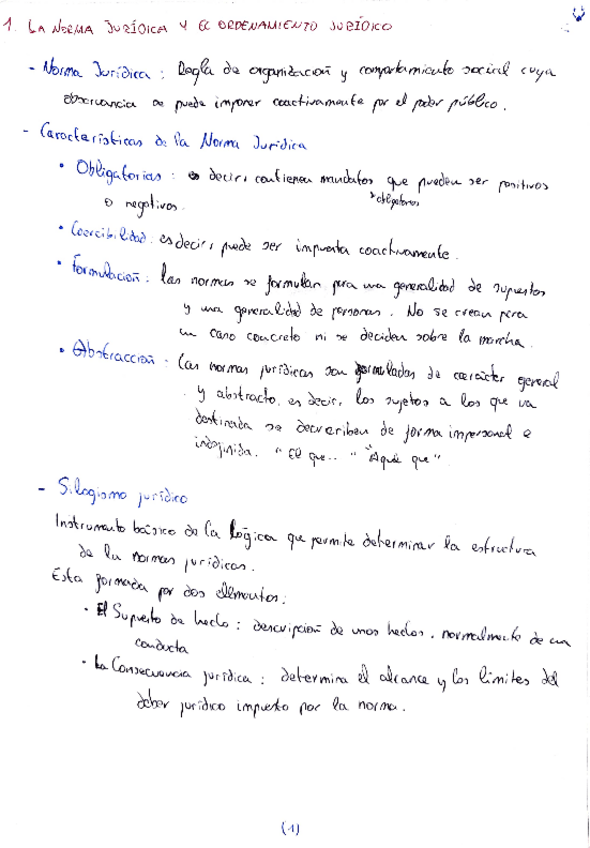 1. LA NORMA JURÍDICA Y EL ORDENAMIENTO JURÍDICO
- Norma Jurídica : Regla de organización y comportamiento social cuya
observancia se puede imponer coactivamente por el poder público.
- Características de la Norma Jurídica
• Obligatorias : es decir, contienen mandatos que pueden ser positivos
o negativos. obligatorios
• Coercibilidad. es decir, puede ser impuesta coactivamente.
• Formulación : las normas se formulan para una generalidad de supuestos
y una generalidad de personas. No se crean para
un caso concreto ni se deciden sobre la marcha.
• Abstracción : Las normas jurídicas son formuladas de carácter general
y abstracto, es decir, los sujetos a los que va
destinada se describen de forma impersonal e
indefinida. "El que.." "Aquel que"
- Silogismo jurídico
Instrumento básico de la lógica que permite determinar la estructura
de las normas jurídicas.
Esta formada por dos elementos:
• El Supuesto de hecho : descripción de unos hechos, normalmente de una
conducta
• La Consecuencia jurídica : determina el alcance y los límites del
deber jurídico impuesto por la norma.
(1)